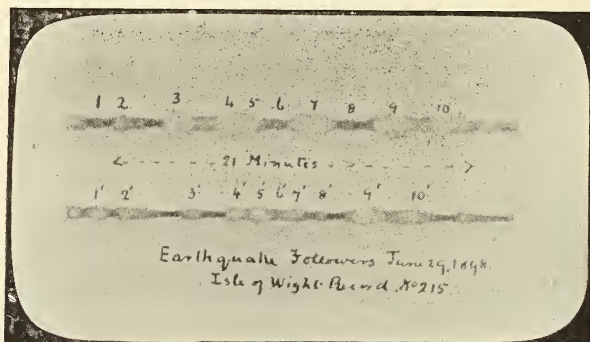 1 2 3 4 5 6 7 8 9 10
21 Minutes
1' 2' 3' 4' 5' 6' 7' 8' 9' 10'
Earthquake Followers June 29, 1898.
Isle of Wight Record, No 215.